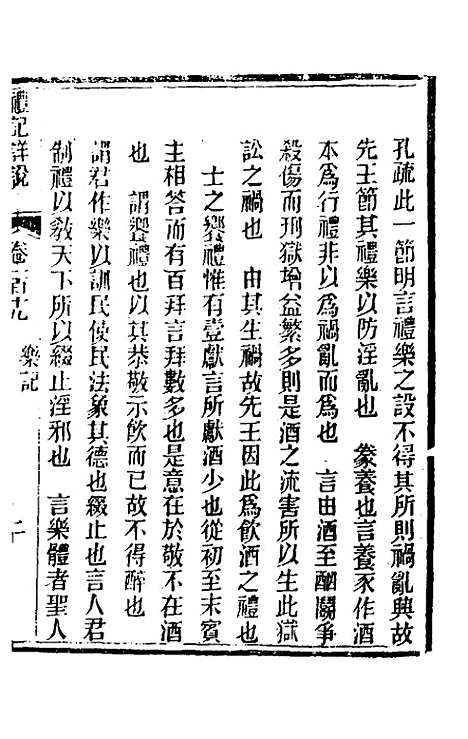 孔疏此一節明言禮樂之設不得其所則禍亂興故
先王節其禮樂以防淫亂也　豢養也言養豕作酒
本爲行禮非以爲禍亂而爲也　言由酒至酗鬭爭
殺傷而刑獄增益繁多則是酒之流害所以生此獄
訟之禍也　由其生禍故先王因此爲飮酒之禮也
士之饗禮惟有壹獻言所獻酒少也從初至末賓
主相答而有百拜言拜數多也是意在於敬不在酒
也　謂饗禮也以其恭敬示飮而已故不得醉也
謂君作樂以訓民使民法象其德也綴止也言人君
制禮以敎天下所以綴止淫邪也　言樂體者聖人
禮記詳說　卷一百九　樂記